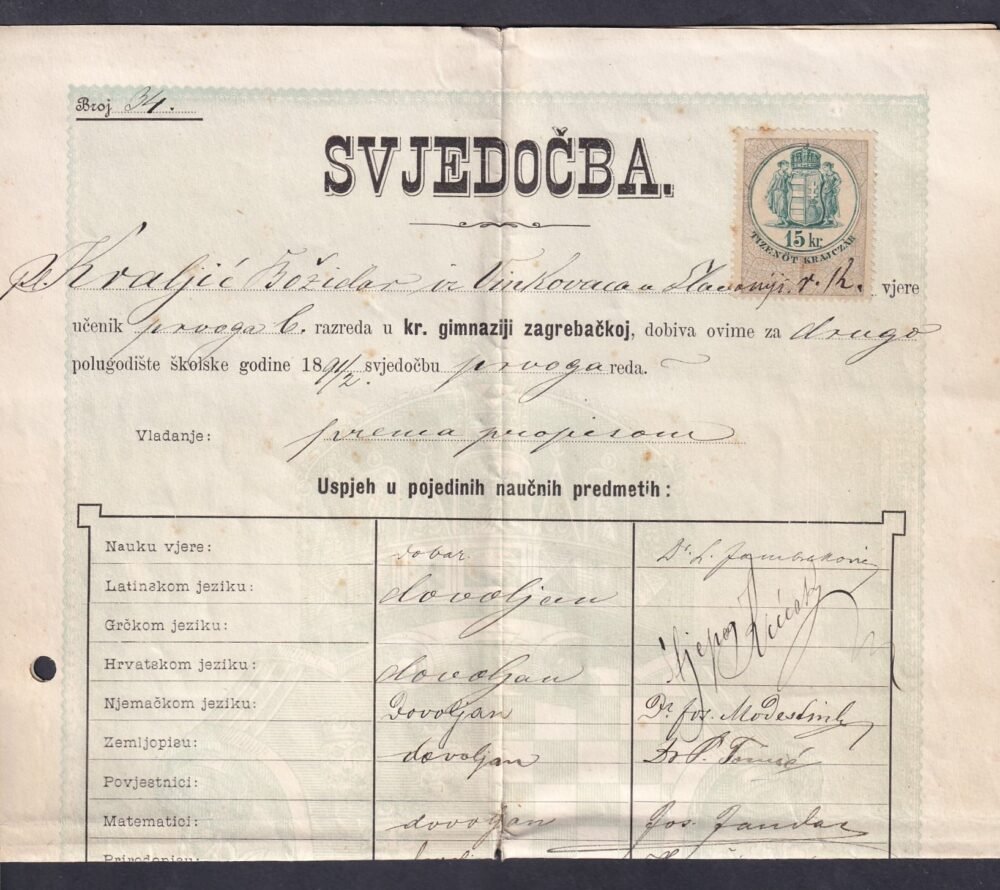 Broj 34.
SVJEDOČBA.
15 kr.
TIZENÖT KRAJCZÁR
pl. Kraljić Božidar iz Vinkovaca u Slavoniji, r. k. vjere
učenik prvoga b. razreda u kr. gimnaziji zagrebačkoj, dobiva ovime za drugo
polugodište školske godine 1891/2. svjedočbu prvoga reda.
Vladanje: prema propisom
Uspjeh u pojedinih naučnih predmetih:
Nauku vjere: dobar.
Latinskom jeziku: dovoljan
Grčkom jeziku:
Hrvatskom jeziku: dovoljan
Njemačkom jeziku: Dovoljan Dr. Jos. Modestin
Zemljopisu: dovoljan Dr P. Tomić
Povjestnici:
Matematici: dovoljan Jos. Jandaz
Prirodopisu: